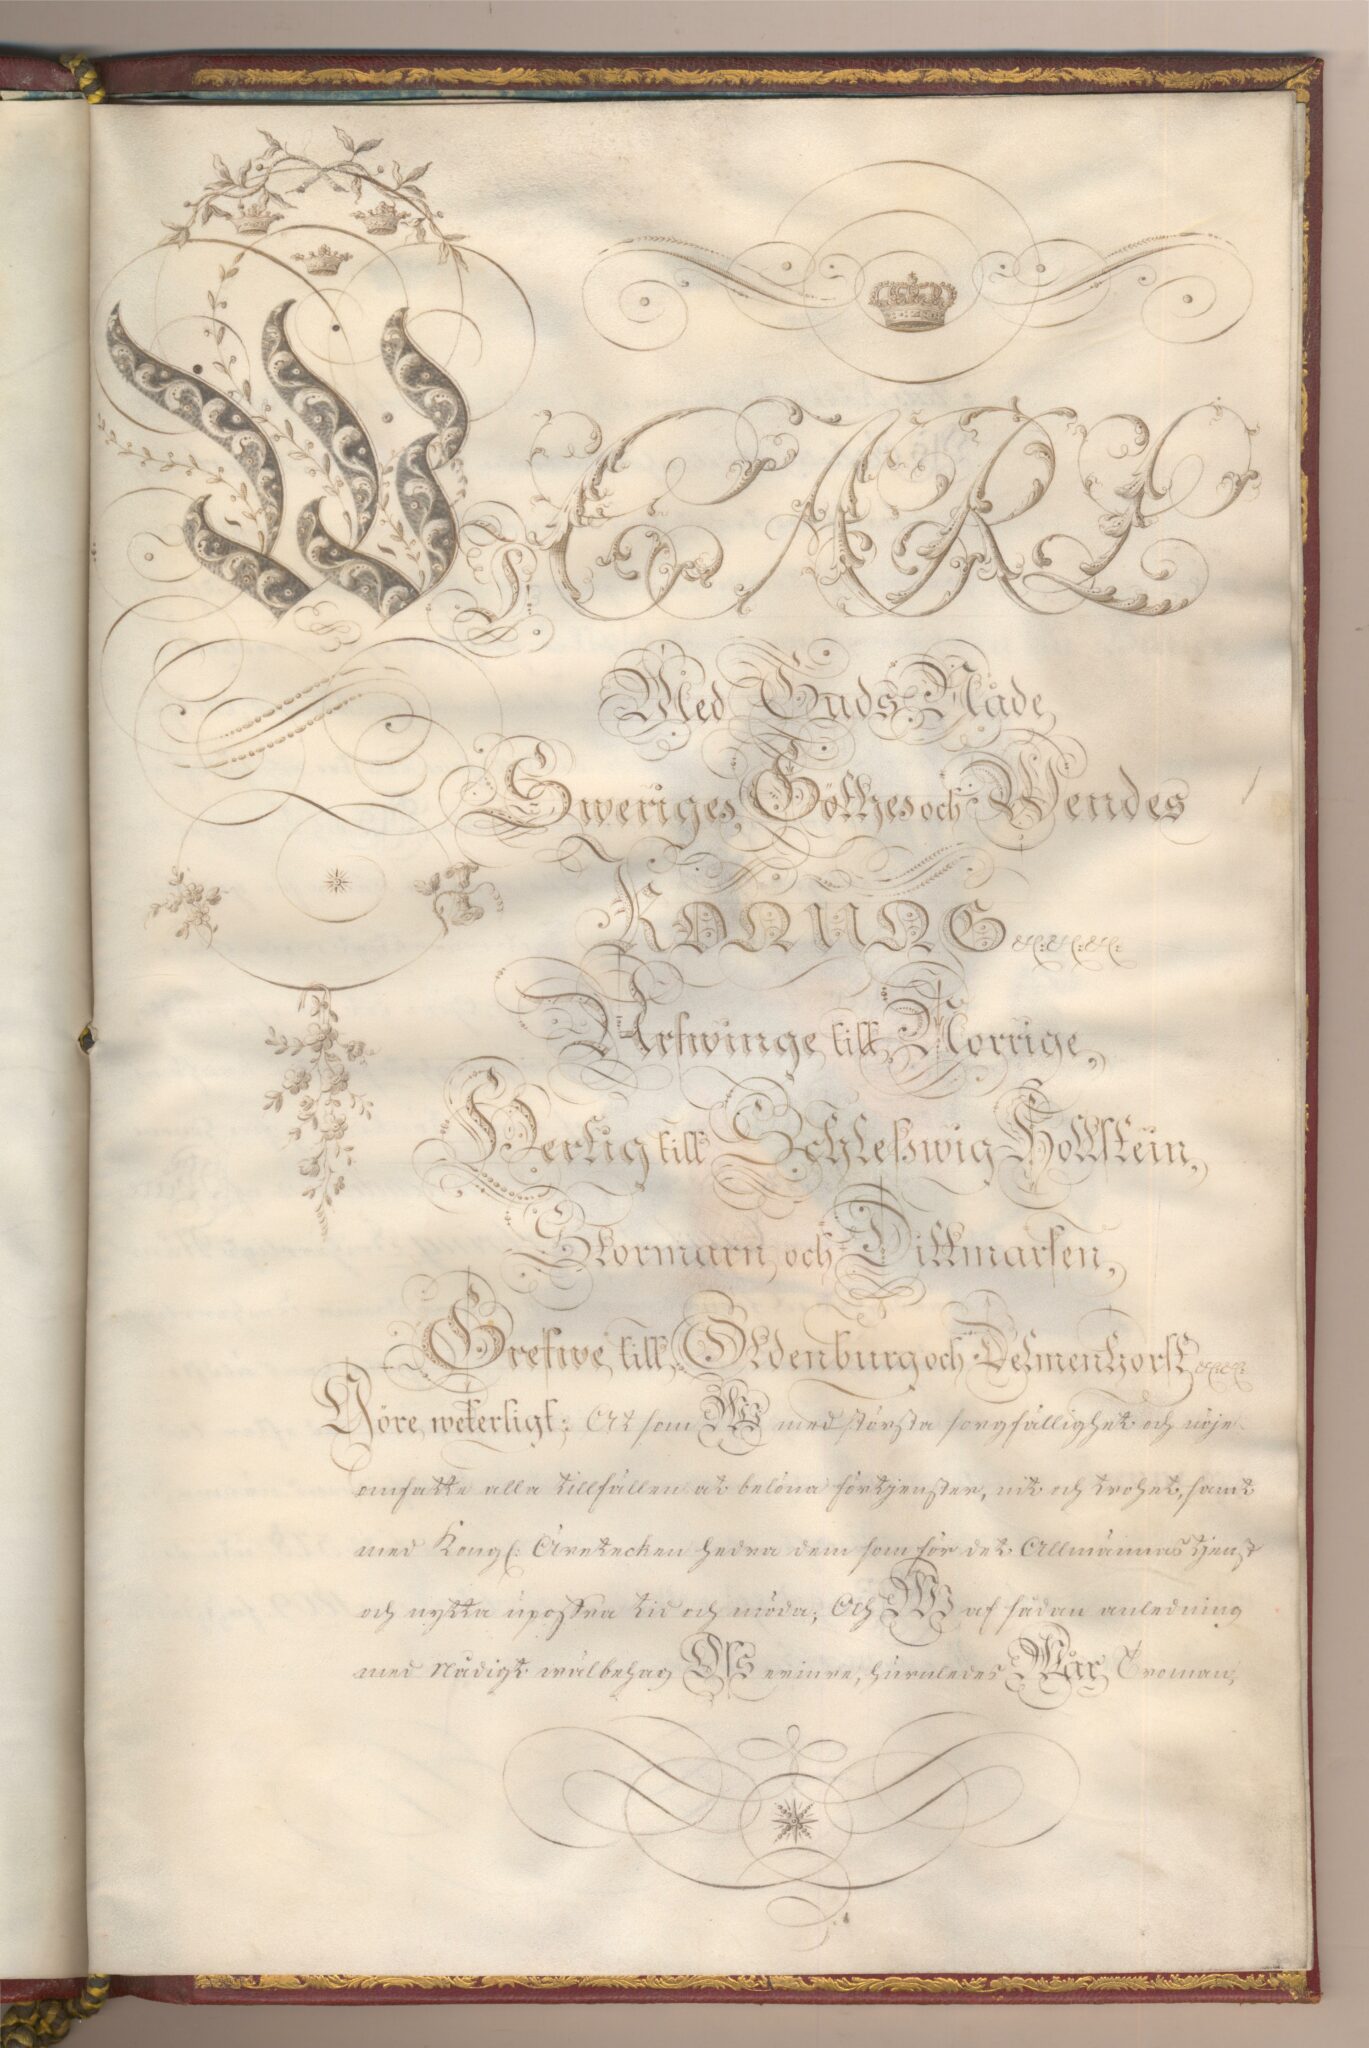 Wi CARL
Med Guds Nåde,
Sweriges, Göthes och Wendes
KONUNG &c: &c: &c:
Arfwinge till Norrige,
Hertig till Schleßwig Hollstein,
Stormarn och Dittmarsen,
Grefwe till Oldenburg och Delmenhorst &c &c &c
Göre weterligt: At som Wi med största sorgfällighet och nöje
omfatte alla tillfällen at belöna förtjenster, nit och trohet, samt
med Kongl: Äretecken hedra dem som för det Allmännas tjenst
och nytta upoffra tid och möda; Och Wi af sådan anledning
med Nådigt wälbehag Oss erinre, huruledes Wår Troman,